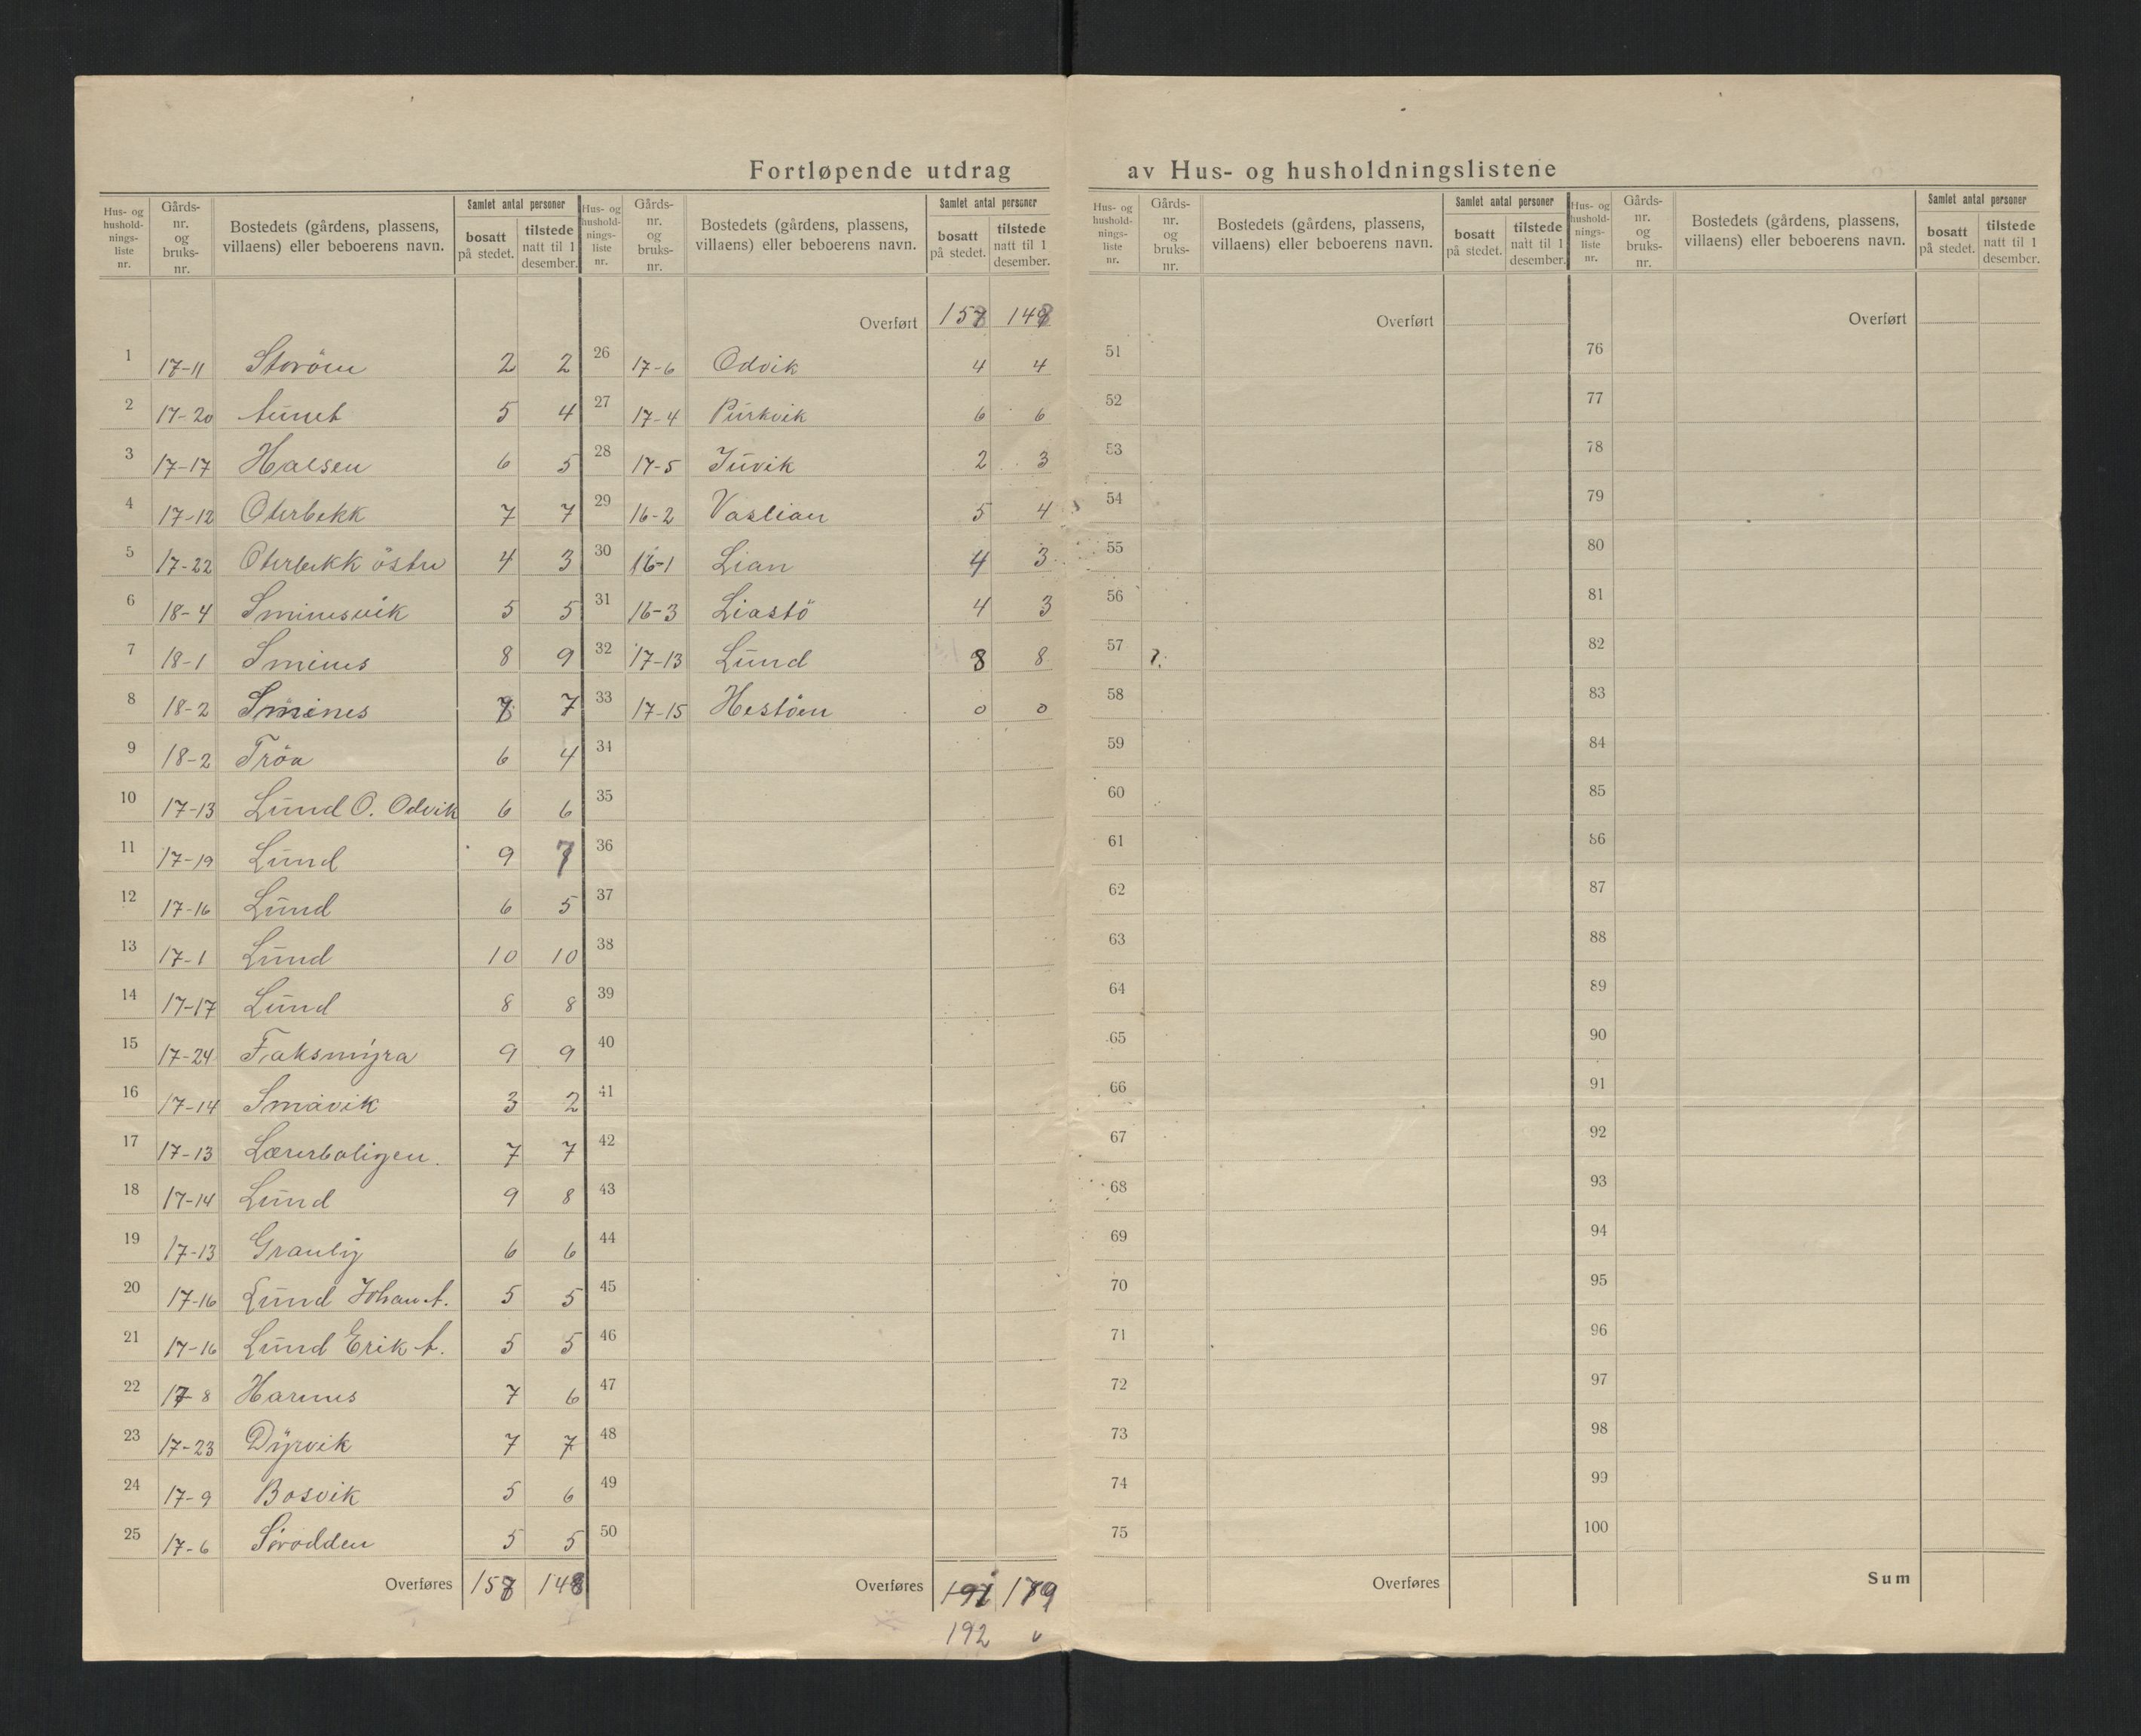 Fortløpende utdrag av Hus- og husholdningslistene
Hus- og husholdningsliste nr. Gårds- nr. og bruks- nr. Bostedets (gårdens, plassens, villaens) eller beboerens navn. Samlet antal personer bosatt på stedet. tilstede natt til 1 desember.
1 17-11 Storöen 2 2
2 17-20 Aunet 5 4
3 17-17 Halsen 6 5
4 17-12 Oterbekk 7 7
5 17-22 Oterbekk östre 4 3
6 18-4 Sminesvik 5 5
7 18-1 Smines 8 9
8 18-2 Smines 7
9 18-2 Tröa 6 4
10 17-13 Lund O. Odvik 6 6
11 17-19 Lund 9 7
12 17-16 Lund 6 5
13 17-1 Lund 10 10
14 17-17 Lund 8 8
15 17-24 Faksmyra 9 9
16 17-14 Småvik 3 2
17 17-13 Lærerboligen. 7 7
18 17-14 Lund 9 8
19 17-13 Granly 6 6
20 17-16 Lund Johan A. 5 5
21 17-16 Lund Erik A. 5 5
22 17-8 Harnes 7 6
23 17-23 Dyrvik 7 7
24 17-9 Bosvik 5 6
25 17-6 Sörodden 5 5
Overføres 158 148
Hus- og husholdningsliste nr. Gårds- nr. og bruks- nr. Bostedets (gårdens, plassens, villaens) eller beboerens navn. Samlet antal personer bosatt på stedet. tilstede natt til 1 desember.
Overført 158 148
26 17-6 Odvik 4 4
27 17-4 Purkvik 6 6
28 17-5 Juvik 2 3
29 16-2 Vaslian 5 4
30 16-1 Lian 4 3
31 16-3 Liastö 4 3
32 17-13 Lund 8 8
33 17-15 Hestöen 0 0
34
35
36
37
38
39
40
41
42
43
44
45
46
47
48
49
50
Overføres 191 179
192
Hus- og husholdningsliste nr. Gårds- nr. og bruks- nr. Bostedets (gårdens, plassens, villaens) eller beboerens navn. Samlet antal personer bosatt på stedet. tilstede natt til 1 desember.
Overført
51
52
53
54
55
56
57
58
59
60
61
62
63
64
65
66
67
68
69
70
71
72
73
74
75
Overføres
Hus- og husholdningsliste nr. Gårds- nr. og bruks- nr. Bostedets (gårdens, plassens, villaens) eller beboerens navn. Samlet antal personer bosatt på stedet. tilstede natt til 1 desember.
Overført
76
77
78
79
80
81
82
83
84
85
86
87
88
89
90
91
92
93
94
95
96
97
98
99
100
Sum